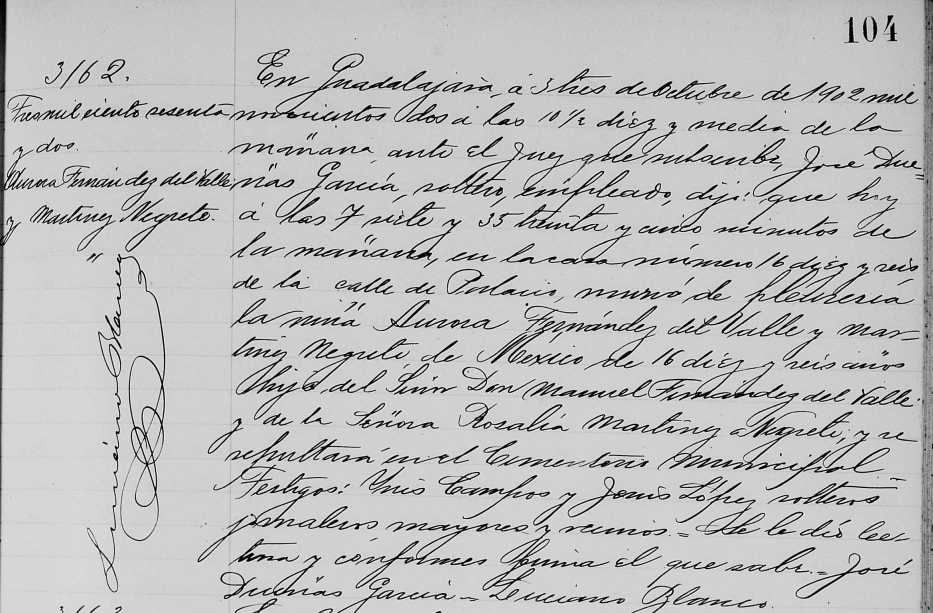 104
3162.
Tres mil ciento sesenta
y dos.
Aurora Fernández del Valle
y Martinez Negrete.
"
Luciano Blanco
En Guadalajara, á 3 tres de Octubre de 1902 mil
novecientos dos á las 10 ½ diez y media de la
mañana, ante el Juez que subscribe, José Due=
ñas García, soltero, empleado, dijo: que hoy
á las 7 siete y 35 treinta y cinco minutos de
la mañana, en la casa número 16 diez y seis
de la calle de Palacio, murió de pleuresía
la niña Aurora Fernández del Valle y Mar-
tinez Negrete, de Mexico de 16 diez y seis años
hija del Señor Don Manuel Fernández del Valle
y de la Señora Rosalía Martinez Negrete; y se
sepultará en el Cementerio Municipal.=
Testigos: Luis Campos y Jesús López solteros
jornaleros mayores y vecinos.= Se le dió lec-
tura y conformes firma el que sabe.= José
Dueñas García = Luciano Blanco.
3163.